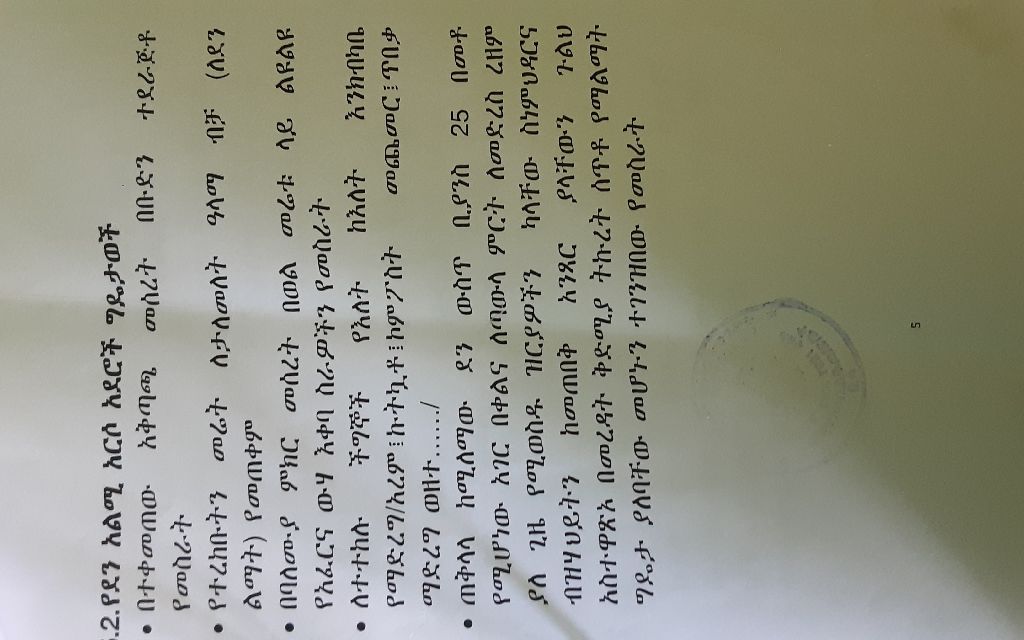 .2.የደን አልሚ አርሶ አደሮች ግዴታወች
• በተቀመጠው አቅጣጫ መሰረት በቡድን ተደራጅቶ
የመስራት
• የተረከቡትን መሬት ለታለመለት ዓላማ ብቻ (ለደን
ልማት) የመጠቀም
• በባለሙያ ምክር መሰረት በወል መሬቱ ላይ ልዩልዩ
የአፈርና ውሃ እቀባ ስራዎችን የመስራት
• ለተተከሉ ችግኞች የእለት ከእለት እንክብካቤ
የማድረግ/አረም፤ኩትኳቶ፤ከምፖስት መጨመር፤ጥበቃ
ማድረግ ወዘተ....../
• ጠቅላላ ከሚለማው ደን ውስጥ ቢያንስ 25 በመቶ
የሚሆነው አገር በቀልና ለጣውላ ምርት ለመድረስ ረዘም
ያለ ጊዜ የሚወስዱ ዝርያዎችን ካላቸው ስነምህዳርና
ብዝሃህይትን ከመጠበቅ አንጻር ያላቸውን ጉልህ
አስተዋጽኦ በመረዳት ቅድሚያ ትኩረት ሰጥቶ የማልማት
ግዴታ ያለባቸው መሆኑን ተገንዝበው የመስራት
5